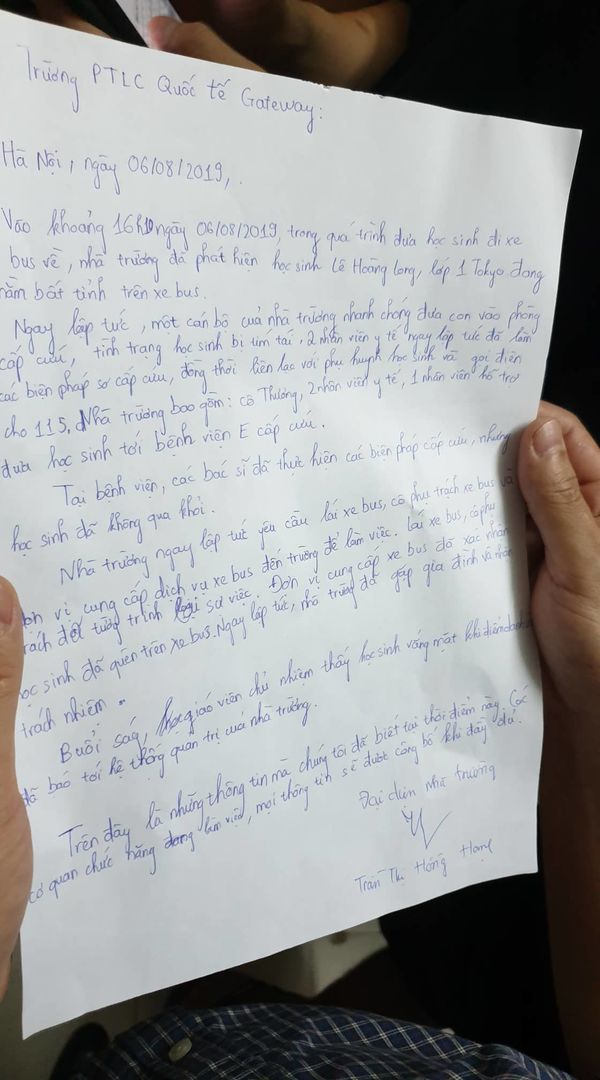 Trường PTLC Quốc tế Gateway:
Hà Nội, ngày 06/08/2019,.
Vào khoảng 16h10 ngày 06/08/2019, trong quá trình đưa học sinh đi xe
bus về, nhà trường đã phát hiện học sinh Lê Hoàng Long, lớp 1 Tokyo đang
nằm bất tỉnh trên xe bus.
Ngay lập tức, một cán bộ của nhà trường nhanh chóng đưa con vào phòng
cấp cứu, tình trạng học sinh bị tím tái, 2 nhân viên y tế ngay lập tức đã làm
các biện pháp sơ cấp cứu, đồng thời liên lạc với phụ huynh học sinh và gọi điện
cho 115. Nhà trường bao gồm: cô Thương, 2 nhân viên y tế, 1 nhân viên hỗ trợ
đưa học sinh tới bệnh viện E cấp cứu.
Tại bệnh viện, các bác sĩ đã thực hiện các biện pháp cấp cứu, nhưng
học sinh đã không qua khỏi.
Nhà trường ngay lập tức yêu cầu lái xe bus, cô phụ trách xe bus và
đơn vị cung cấp dịch vụ xe bus đến trường để làm việc. Lái xe bus, cô phụ
trách để tường trình lại sự việc. Đơn vị cung cấp xe bus đã xác nhận
học sinh đã quên trên xe bus. Ngay lập tức, nhà trường đã gặp gia đình và nhận
trách nhiệm.
Buổi sáng, giáo viên chủ nhiệm thấy học sinh vắng mặt khi điểm danh
đã báo tới hệ thống quản trị của nhà trường.
Trên đây là những thông tin mà chúng tôi đã biết tại thời điểm này. Các
cơ quan chức năng đang làm việc, mọi thông tin sẽ được công bố khi đầy đủ.
Đại diện nhà trường
Trần Thị Hồng Hạnh